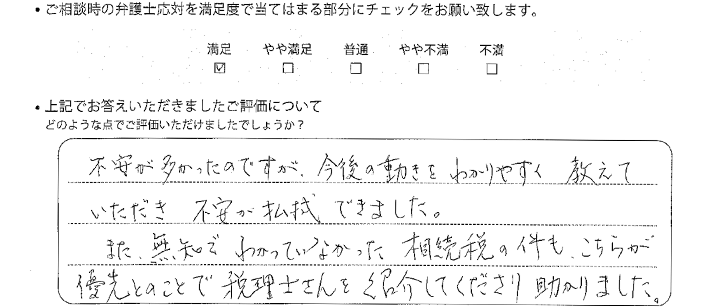 ・ご相談時の弁護士応対を満足度で当てはまる部分にチェックをお願い致します。
満足 やや満足 普通 やや不満 不満
☑ □ □ □ □
・上記でお答えいただきましたご評価について
どのような点でご評価いただけましたでしょうか？
不安が多かったのですが、今後の動きをわかりやすく 教えて
いただき 不安が払拭 できました。
また、無知で わかっていなかった 相続税の件も、こちらが
優先とのことで税理士さんを紹介してくださり助かりました。